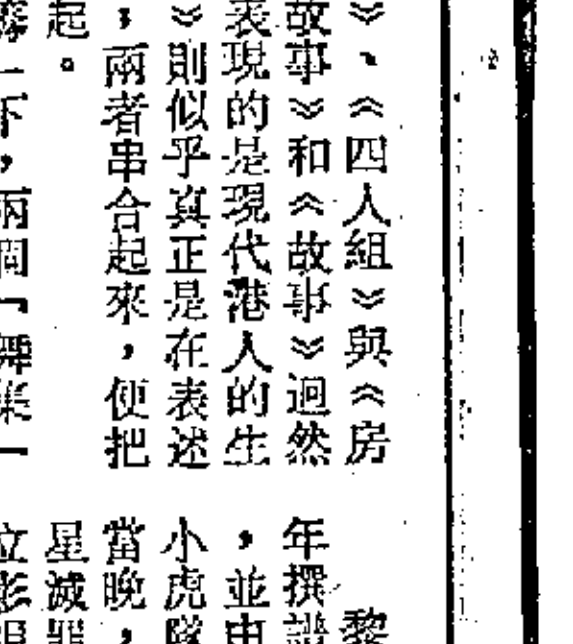 》、《四人組》與《房
故事》和《故事》迥然
表現的是現代港人的生
》則似乎真正是在表述
，兩者串合起來，便把
起。
一下，兩個「舞
黎
年撰
，並由
小虎隊
當晚，
星滅罪
立影